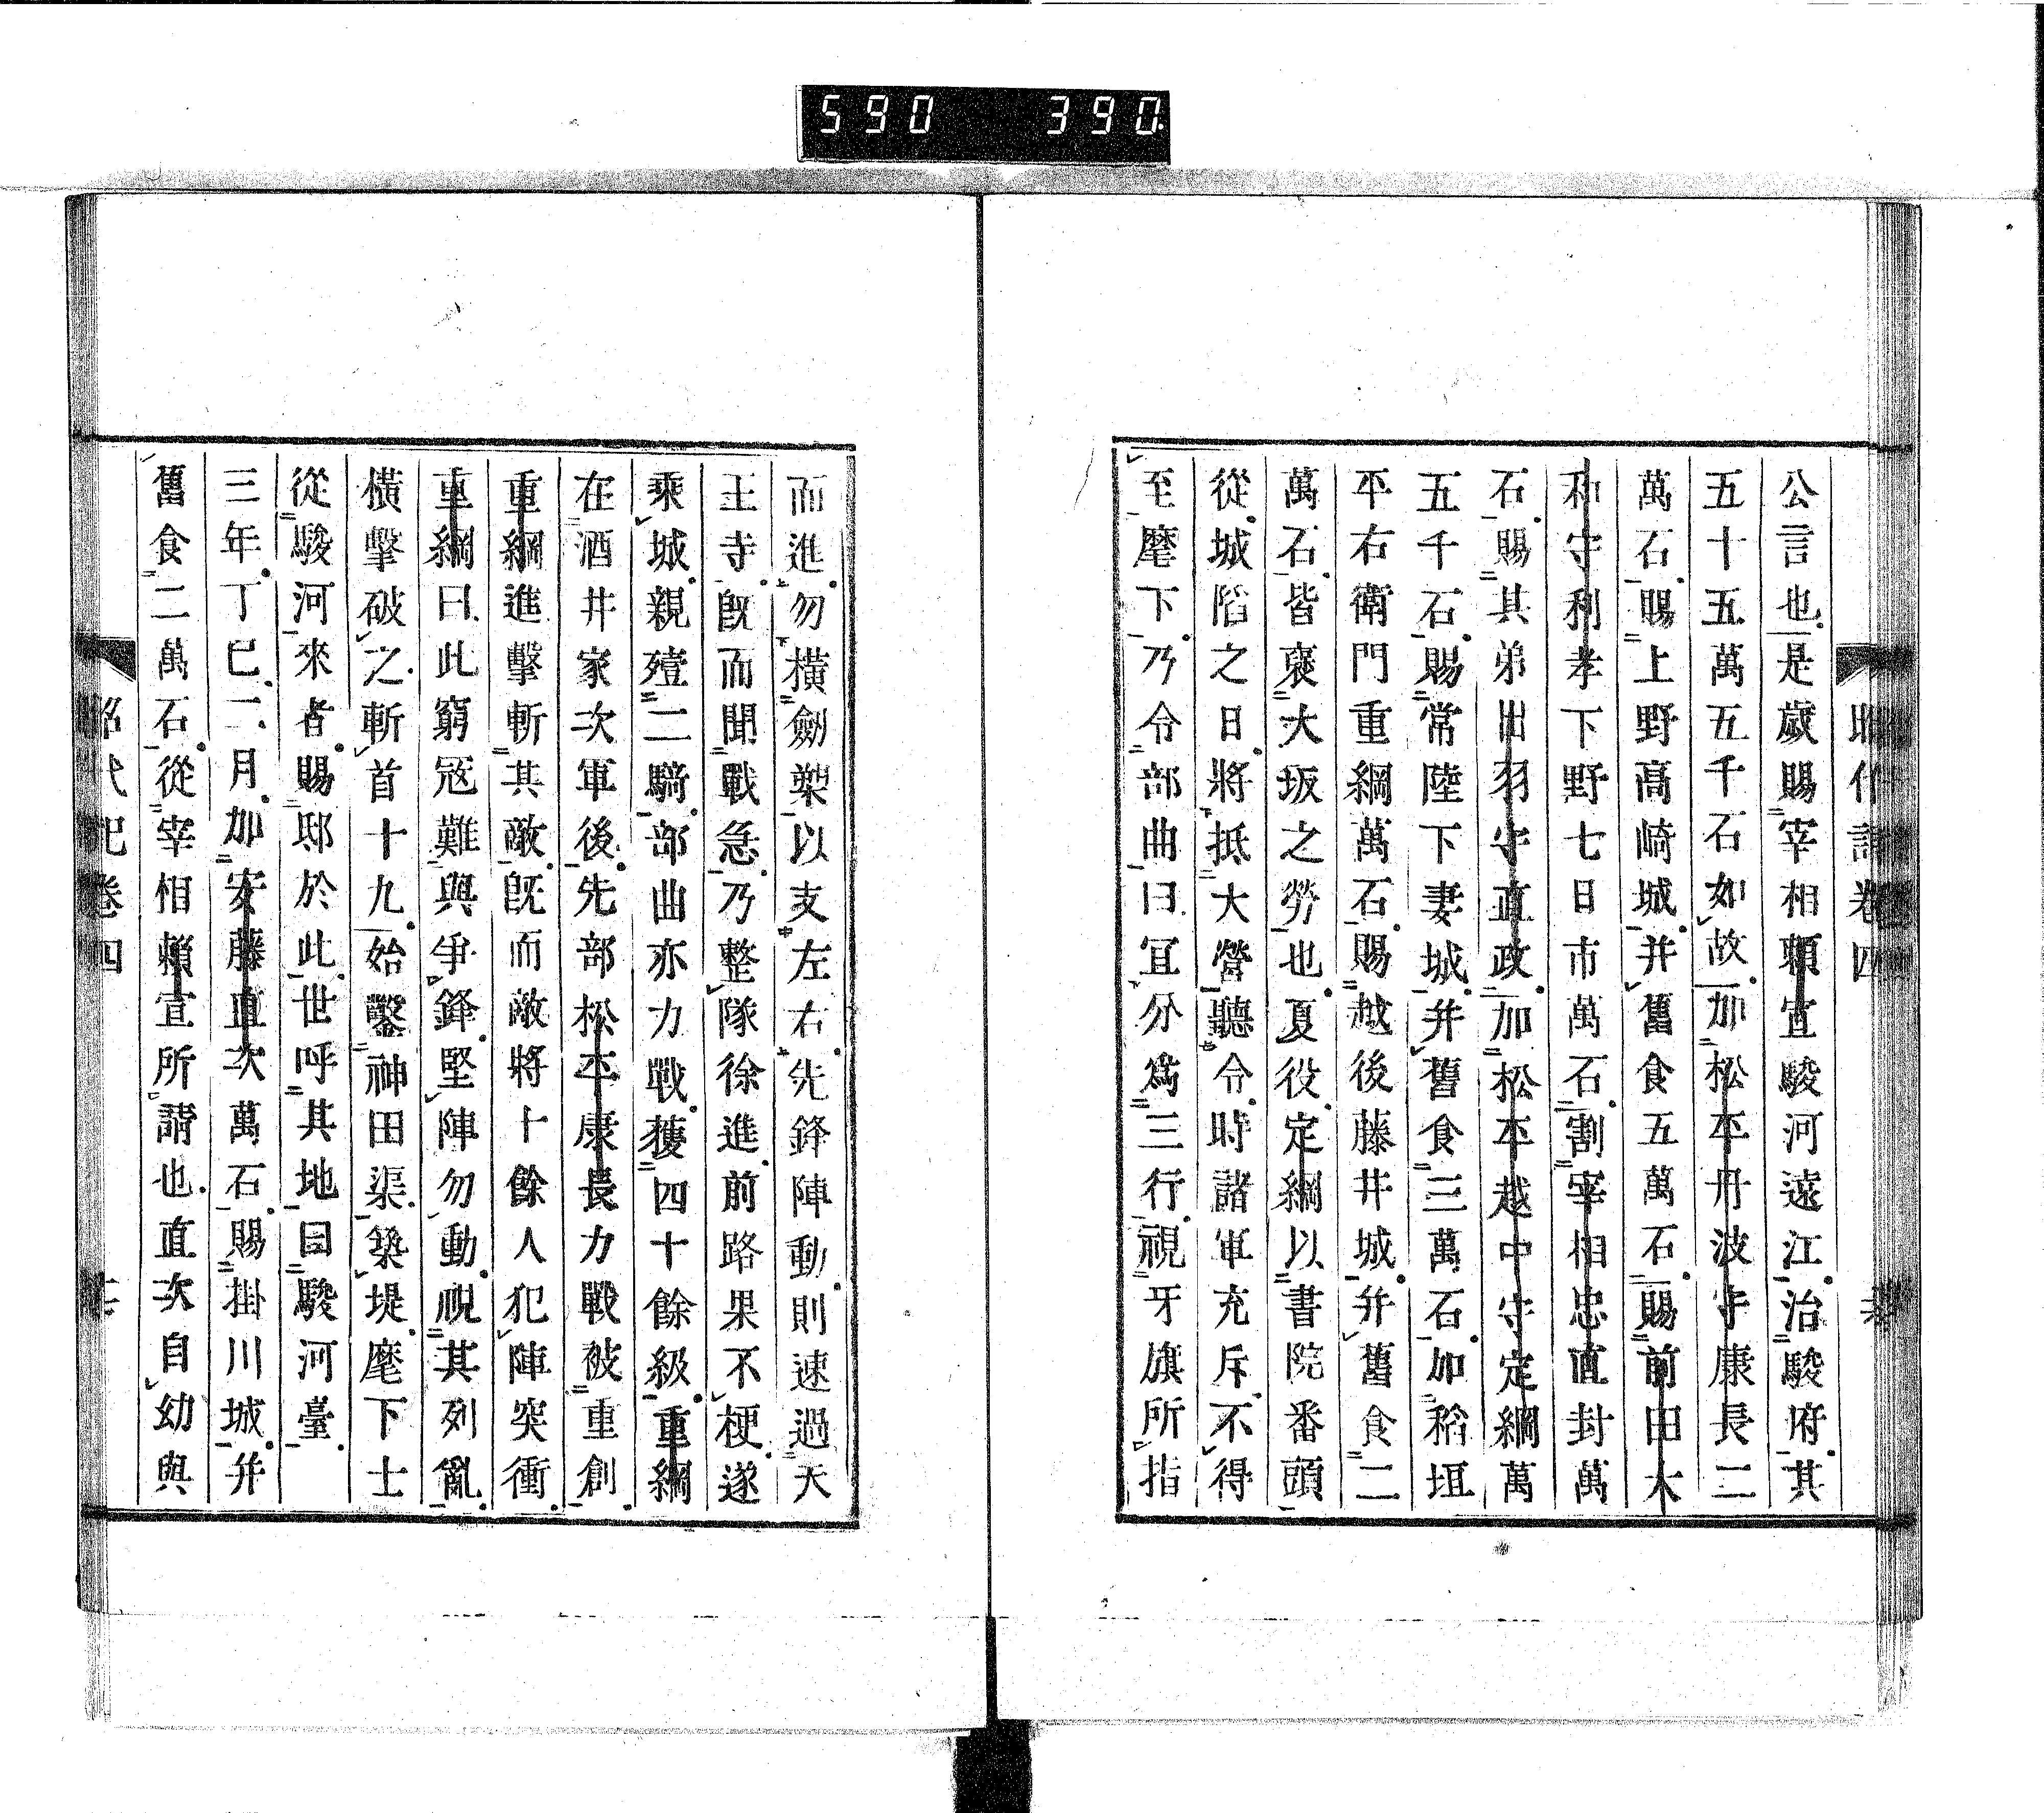 590 390
公言也是歲賜宰相賴宣駿河遠江治駿府其
五十五萬五千石如故加松平丹波守康長二
萬石賜上野高崎城并舊食五萬石賜前田大
和守利孝下野七日市萬石割宰相忠直封萬
石賜其弟出羽守直政加松平越中守定綱萬
五千石賜常陸下妻城并舊食三萬石加稻垣
平右衛門重綱萬石賜越後藤井城并舊食二
萬石皆褒大坂之勞也夏役定綱以書院番頭
從城陷之日將抵大營聽令時諸軍充斥不得
至麾下乃令部曲曰宜分爲三行視牙旗所指
而進勿橫劒槊以支左右先鋒陣動則速過天
王寺既而聞戰急乃整隊徐進前路果不梗遂
乘城親殪二騎部曲亦力戰獲四十餘級重綱
在酒井家次軍後先部松平康長力戰被重創
重綱進擊斬其敵既而敵將十餘人犯陣突衝
重綱曰此窮冦難與爭鋒堅陣勿動視其列亂
橫擊破之斬首十九始鑿神田渠築堤麾下士
從駿河來者賜邸於此世呼其地曰駿河臺
三年丁巳二月加安藤直次萬石賜掛川城并
舊食二萬石從宰相賴宣所請也直次自幼與
昭代記卷四